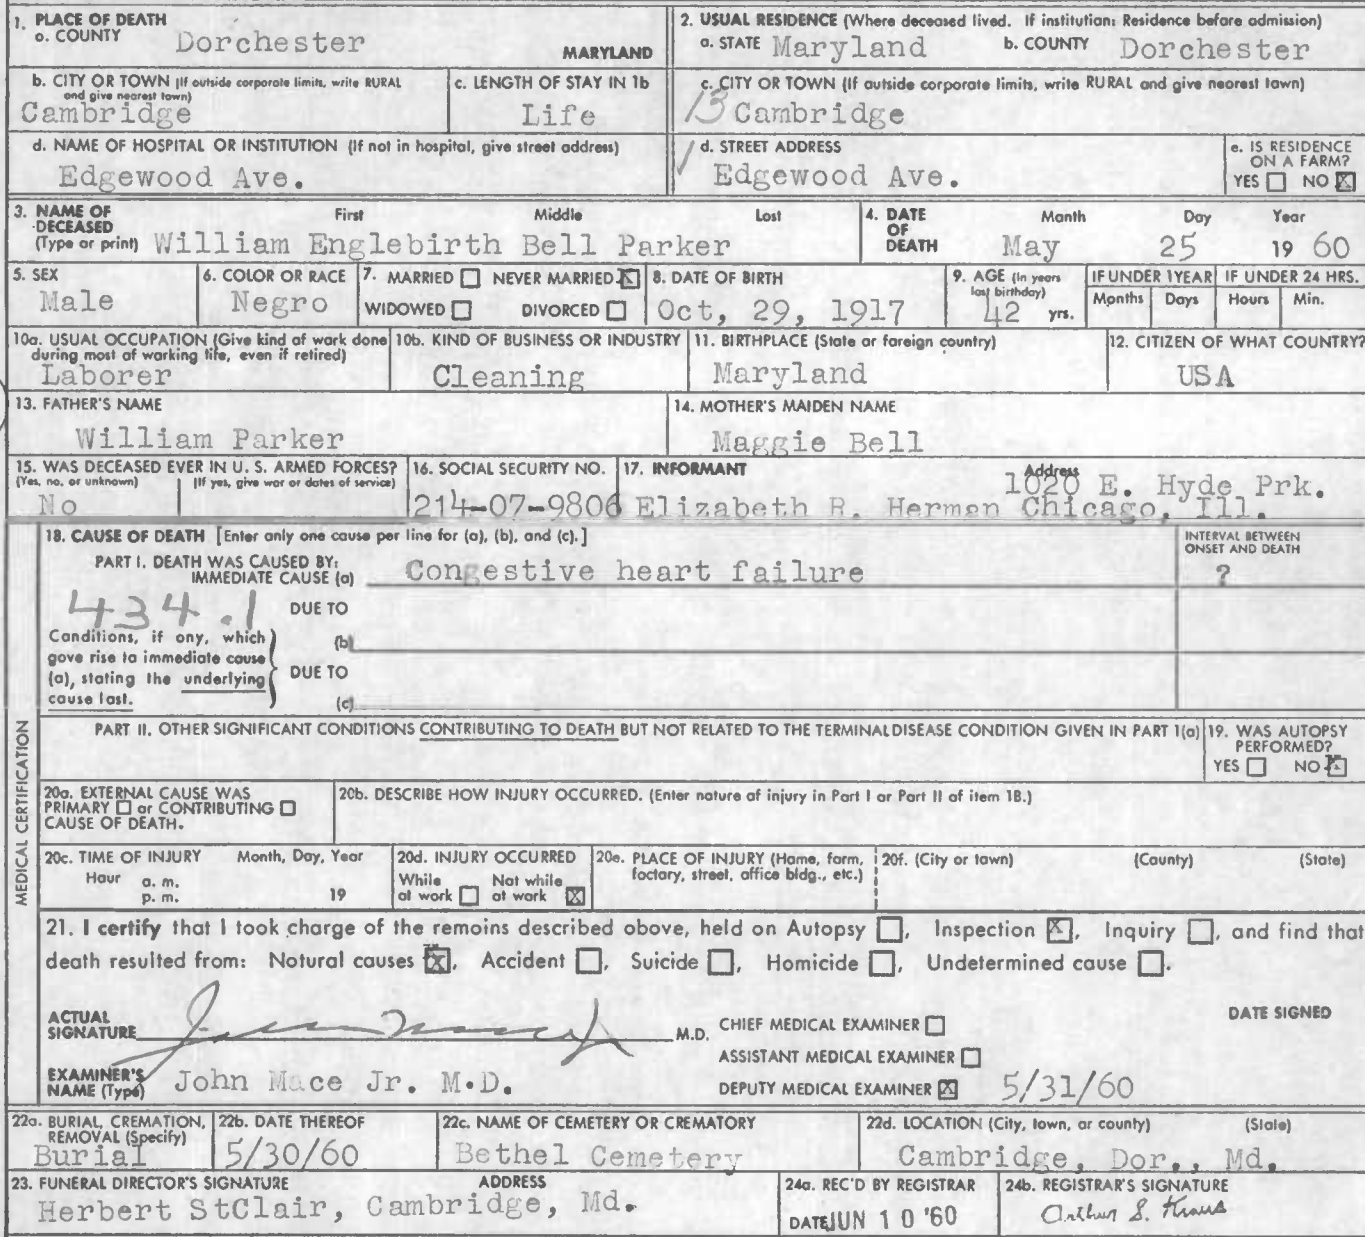 1. PLACE OF DEATH
a. COUNTY Dorchester MARYLAND
2. USUAL RESIDENCE (Where deceased lived. If institution: Residence before admission)
a. STATE Maryland b. COUNTY Dorchester
b. CITY OR TOWN (If outside corporate limits, write RURAL and give nearest town)
Cambridge
c. LENGTH OF STAY IN 1b
Life
c. CITY OR TOWN (If outside corporate limits, write RURAL and give nearest town)
13 Cambridge
d. NAME OF HOSPITAL OR INSTITUTION (If not in hospital, give street address)
Edgewood Ave.
d. STREET ADDRESS
Edgewood Ave.
e. IS RESIDENCE ON A FARM?
YES NO X
3. NAME OF DECEASED (Type or print)
First Middle Last
William Englebirth Bell Parker
4. DATE OF DEATH
Month Day Year
May 25 19 60
5. SEX
Male
6. COLOR OR RACE
Negro
7. MARRIED NEVER MARRIED X
WIDOWED DIVORCED
8. DATE OF BIRTH
Oct, 29, 1917
9. AGE (In years last birthday)
42 yrs.
IF UNDER 1 YEAR
Months Days
IF UNDER 24 HRS.
Hours Min.
10a. USUAL OCCUPATION (Give kind of work done during most of working life, even if retired)
Laborer
10b. KIND OF BUSINESS OR INDUSTRY
Cleaning
11. BIRTHPLACE (State or foreign country)
Maryland
12. CITIZEN OF WHAT COUNTRY?
USA
13. FATHER'S NAME
William Parker
14. MOTHER'S MAIDEN NAME
Maggie Bell
15. WAS DECEASED EVER IN U. S. ARMED FORCES?
(Yes, no, or unknown) (If yes, give war or dates of service)
No
16. SOCIAL SECURITY NO.
214-07-9806
17. INFORMANT Address
1020 E. Hyde Prk.
Elizabeth R. Herman Chicago, Ill.
MEDICAL CERTIFICATION
18. CAUSE OF DEATH [Enter only one cause per line for (a), (b), and (c).]
INTERVAL BETWEEN ONSET AND DEATH
PART I. DEATH WAS CAUSED BY:
IMMEDIATE CAUSE (a) Congestive heart failure ?
434.1
DUE TO
(b)
Conditions, if any, which gave rise to immediate cause (a), stating the underlying cause last.
DUE TO
(c)
PART II. OTHER SIGNIFICANT CONDITIONS CONTRIBUTING TO DEATH BUT NOT RELATED TO THE TERMINAL DISEASE CONDITION GIVEN IN PART 1(a)
19. WAS AUTOPSY PERFORMED?
YES NO X
20a. EXTERNAL CAUSE WAS
PRIMARY or CONTRIBUTING
CAUSE OF DEATH.
20b. DESCRIBE HOW INJURY OCCURRED. (Enter nature of injury in Part I or Part II of item 18.)
20c. TIME OF INJURY Month, Day, Year
Hour a. m.
p. m. 19
20d. INJURY OCCURRED
While at work Not while at work X
20e. PLACE OF INJURY (Home, farm, factory, street, office bldg., etc.)
20f. (City or town) (County) (State)
21. I certify that I took charge of the remains described above, held on Autopsy , Inspection X, Inquiry , and find that
death resulted from: Natural causes X, Accident , Suicide , Homicide , Undetermined cause .
ACTUAL SIGNATURE M.D.
CHIEF MEDICAL EXAMINER
ASSISTANT MEDICAL EXAMINER
DEPUTY MEDICAL EXAMINER X
DATE SIGNED
5/31/60
EXAMINER'S NAME (Type) John Mace Jr. M.D.
22a. BURIAL, CREMATION, REMOVAL (Specify)
Burial
22b. DATE THEREOF
5/30/60
22c. NAME OF CEMETERY OR CREMATORY
Bethel Cemetery
22d. LOCATION (City, town, or county) (State)
Cambridge, Dor., Md.
23. FUNERAL DIRECTOR'S SIGNATURE ADDRESS
Herbert StClair, Cambridge, Md.
24a. REC'D BY REGISTRAR
DATE JUN 10 '60
24b. REGISTRAR'S SIGNATURE
Arthur S. Kraus